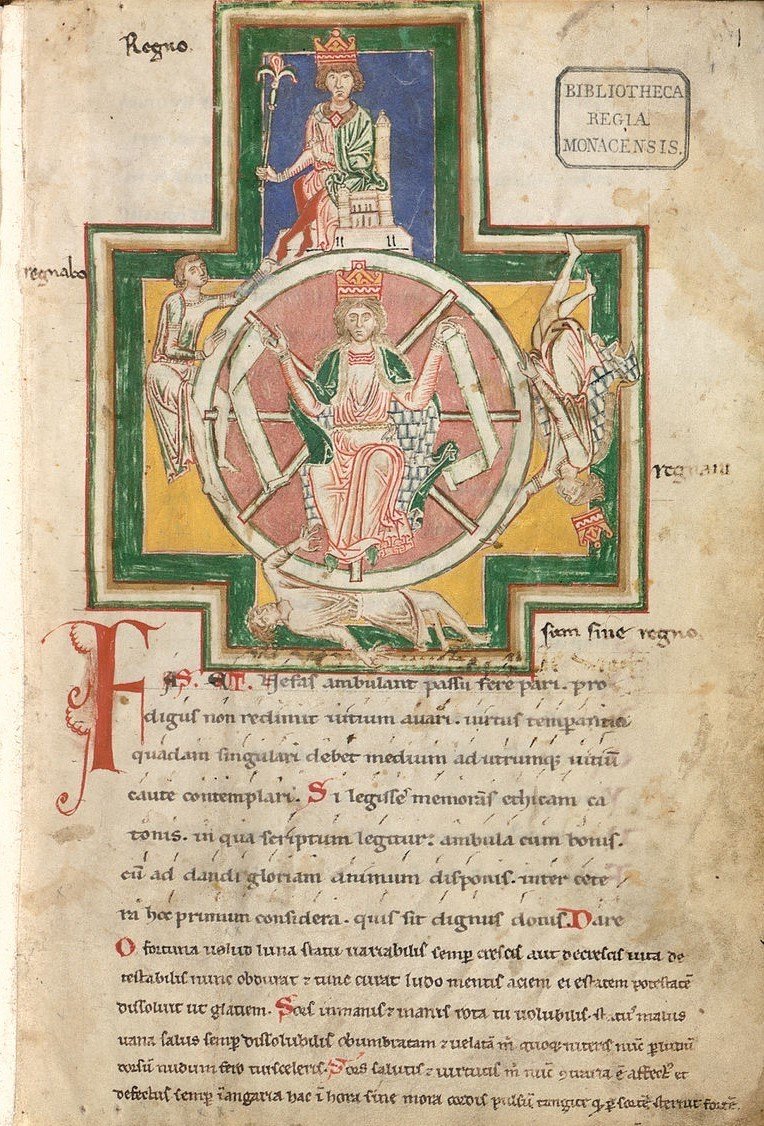 Regno.
1
BIBLIOTHECA
REGIA
MONACENSIS.
regnabo
regnaui
sum sine regno.
FAS. ET. Nefas ambulant passu fere pari. pro
digus non redimit uitium auari. uirtus temperantia
quadam singulari debet medium ad utrumque uitiū
caute contemplari. Si legisse memoras ethicam ca
tonis. in qua scriptum legitur: ambula cum bonis.
cū ad dandi gloriam animum disponis. inter cete
ra hoc primum considera. quis sit dignus donis. Dare
O fortuna uelud luna statu uariabilis semp crescis aut decrescis uita de
testabilis nunc obdurat ⁊ tunc curat ludo mentis aciem egestatem potestatē
dissoluit ut glaciem. Sors inmanis ⁊ inanis rota tu uolubilis. status malus
uana salus semp dissolubilis obumbratam ⁊ uelatā m̄ quoque niteris nūc p ludū
dorsū nudum fero tui sceleris. Sors salutis ⁊ uirtutis m̄ nūc ꝯtraria ē affect et
defectus semp ī angaria hac ī hora sine mora cordis pulsū tangite q p sortē sternit fortē.